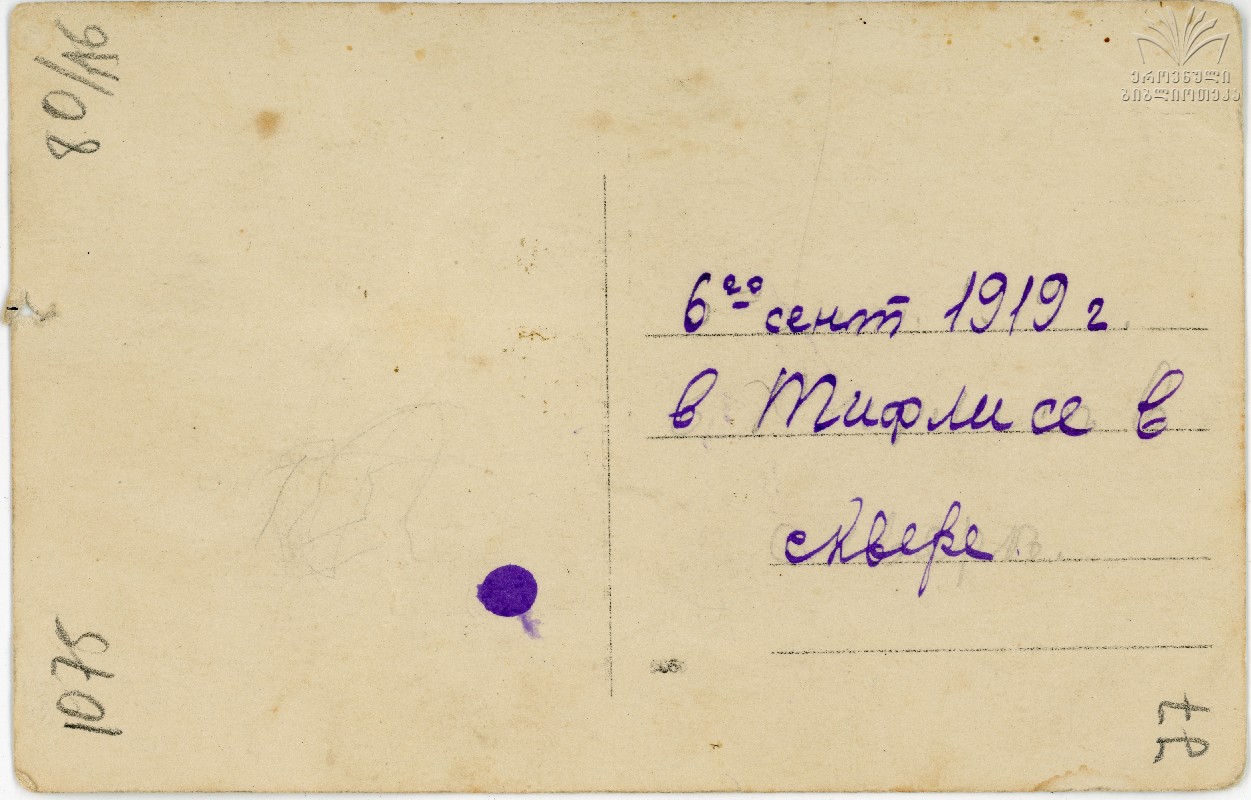 80/16
ეროვნული
ბიბლიოთეკა
6го сент 1919 г.
в Тифлисе в
сквере.
1075
77